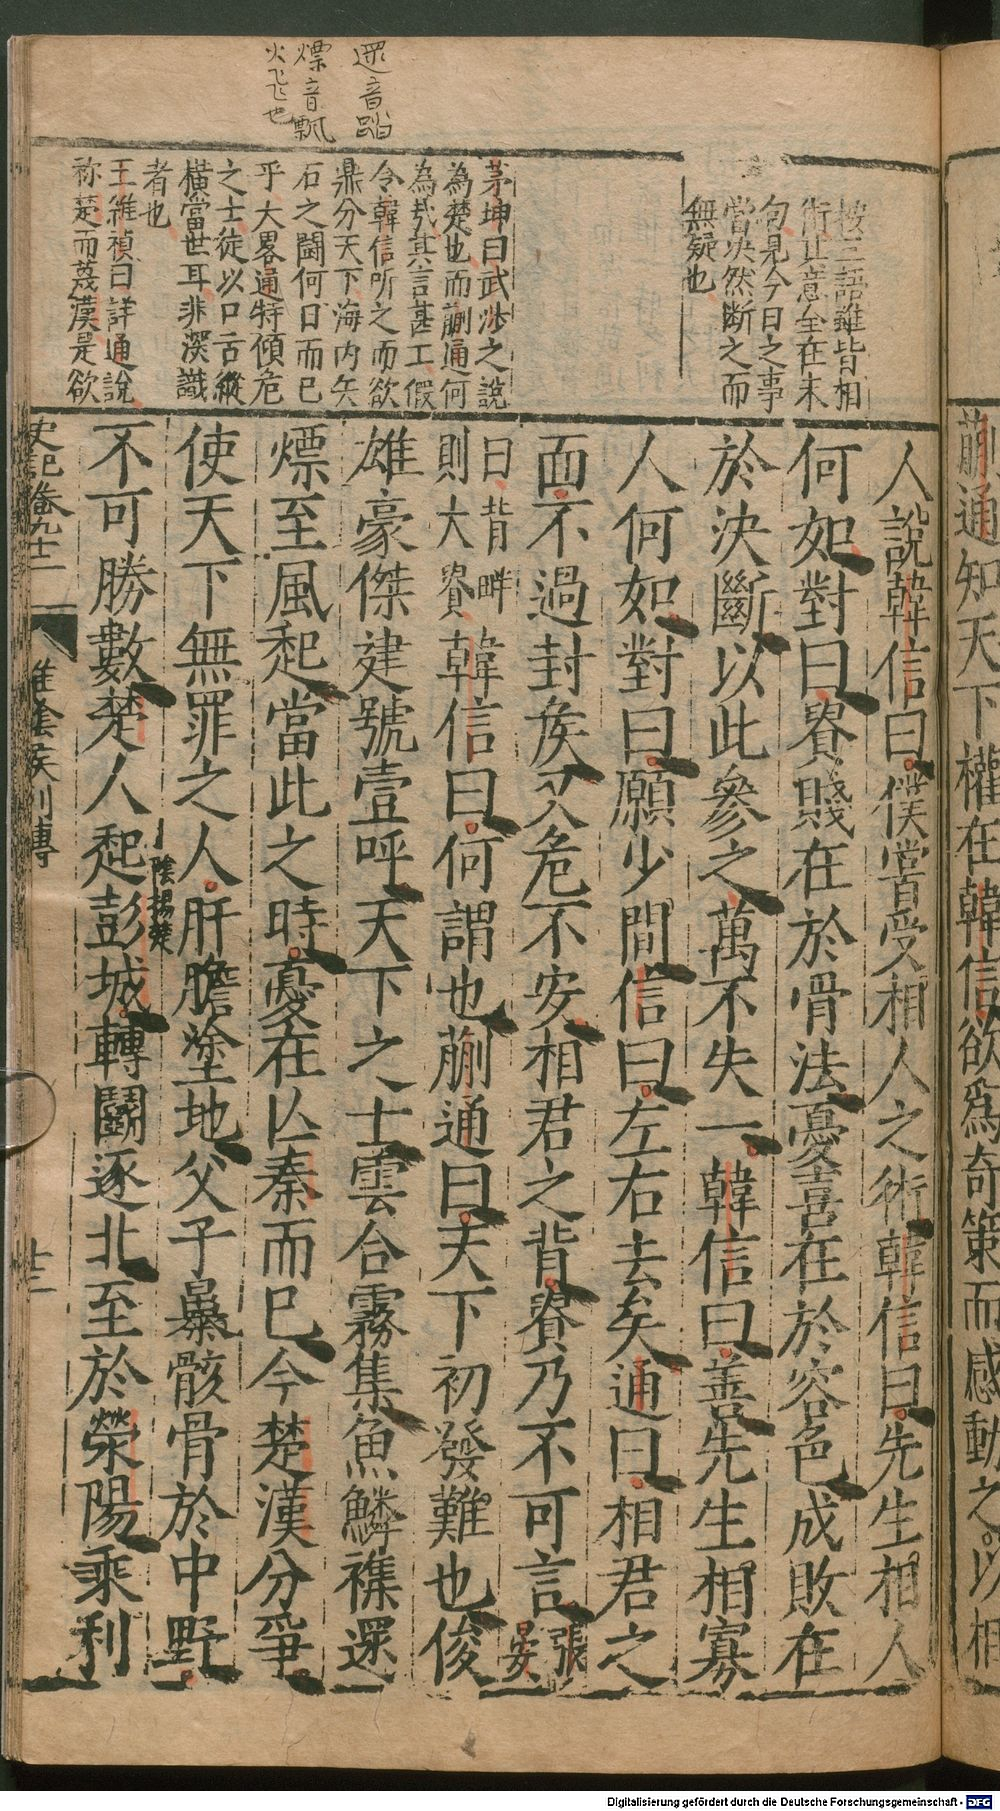 蒯通知天下權在韓信欲爲奇策而感動之以相
人說韓信曰僕嘗受相人之術韓信曰先生相人
何如對曰貴賤在於骨法憂喜在於容色成敗在
於決斷以此參之萬不失一韓信曰善先生相寡
人何如對曰願少間信曰左右去矣通曰相君之
面不過封矦又危不安相君之背貴乃不可言張
晏
曰背畔
則大貴韓信曰何謂也蒯通曰天下初發難也俊
雄豪傑建號壹呼天下之士雲合霧集魚鱗襍遝
熛至風起當此之時憂在亾秦而已今楚漢分爭
使天下無罪之人肝膽塗地父子暴骸骨於中野
不可勝數楚人起彭城轉鬭逐北至於滎陽乘利
陰揚楚
史記卷九十二
淮陰矦列傳
十三
按三語雖皆相
術正意全在末
句見今日之事
當決然斷之而
無疑也
茅坤曰武涉之說
為楚也而蒯通何
為哉其言甚工假
令韓信所之而欲
鼎分天下海内矢
石之鬪何日而已
乎大畧通特傾危
之士徒以口舌縱
橫當世耳非深識
者也
王維禎曰詳通說
祢楚而蔑漢是欲
遝音踏
熛音飄
火飞也
Digitalisierung gefördert durch die Deutsche Forschungsgemeinschaft - DFG